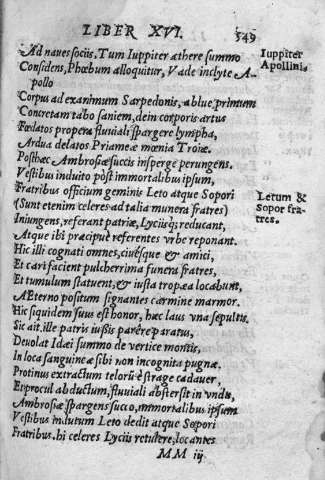 LIBER XVI. 549
Ad naues sociis, Tum Iuppiter æthere summo
Iuppiter
Considens, Phœbum alloquitur, Vade inclyte A-
Apollini.
pollo
Corpus ad exanimum Sarpedonis, ablue primum
Concretam tabo saniem, dein corporis artus
Fœdatos propera fluuiali spargere lympha,
Ardua delatos Priameæ mœnia Troiæ.
Posthæc Ambrosiæ succis insperge perungens.
Vestibus induito post immortalibus ipsum,
Fratribus officium geminis Leto atque Sopori
Letum &
(Sunt etenim celeres ad talia munera fratres)
Sopor fra-
Iniungens, referant patriæ, Lyciisq; reducant,
tres.
Atque ibi præcipuè referentes vrbe reponant.
Hic illi cognati omnes, ciuesque & amici,
Et cari facient pulcherrima funera fratres,
Et tumulum statuent, & iusta tropæa locabunt,
AEterno positum signantes carmine marmor.
Hic siquidem suus est honor, hæc laus vna sepultis.
Sic ait, ille patris iussis parere paratus,
Deuolat Idæi summo de vertice montis,
In loca sanguineæ sibi non incognita pugnæ.
Protinus extractum telorū è strage cadauer,
Et procul abductum, fluuiali abstersit in vnda,
Ambrosiæ spargens succo, immortalibus ipsum
Vestibus indutum Leto dedit atque Sopori
Fratribus, hi celeres Lyciis retulere, locantes
MM iij